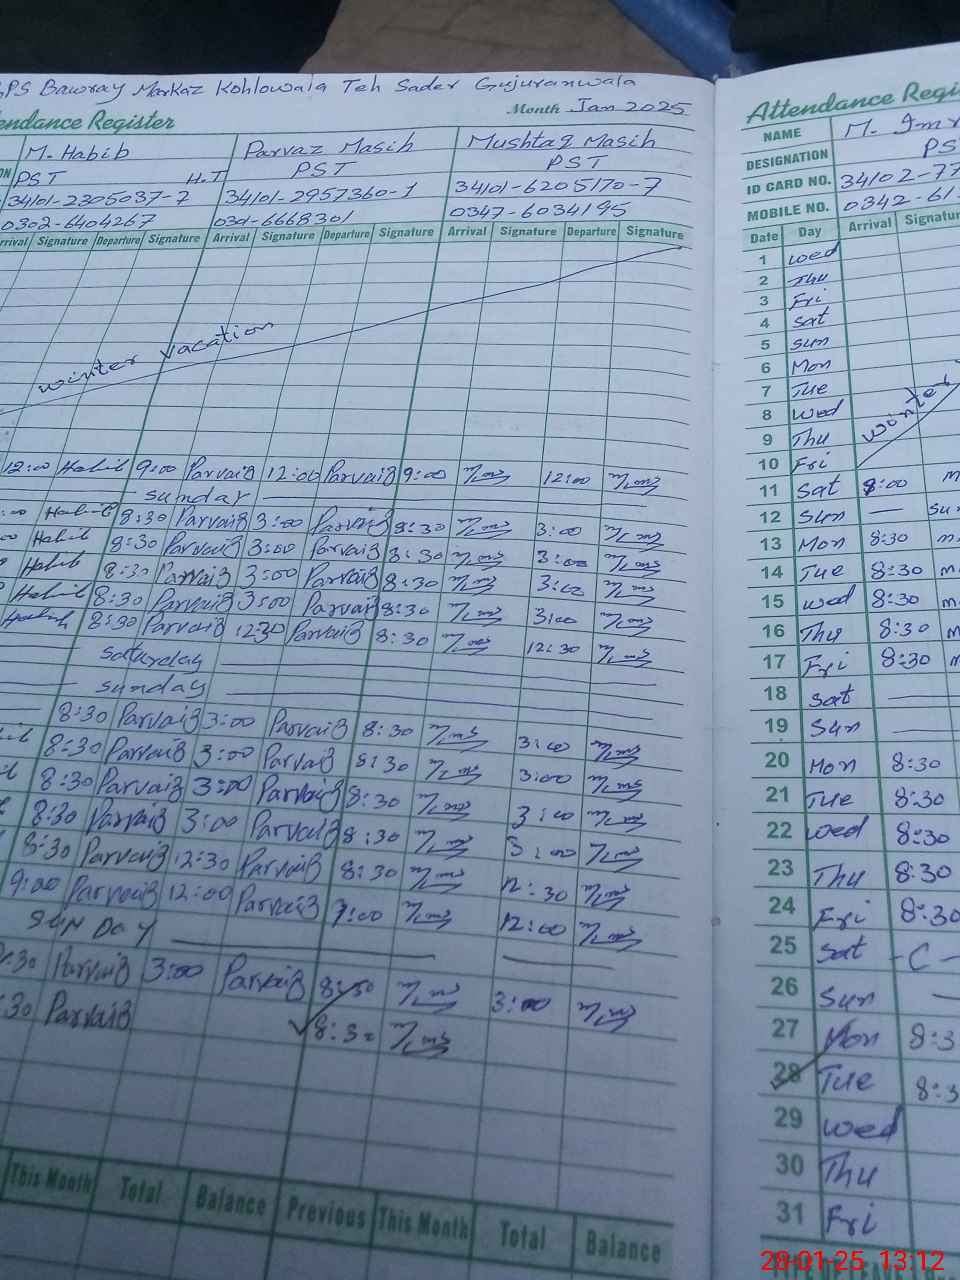 GPS Bawray Markaz Kohlowala Teh Sader Gujuranwala
Attendance Register Month Jan 2025
M. Habib Parvaz Masih Mushtaq Masih
PST H.T PST PST
34101-2305037-7 34101-2957360-1 34101-6205170-7
0302-6404267 0301-6668301 0347-6034195
Arrival Signature Departure Signature Arrival Signature Departure Signature Arrival Signature Departure Signature
winter vacation
12:00 Habib 9:00 Parvaiz 12:00 Parvaiz 9:00 12:00
sunday
:00 Habib 8:30 Parvaiz 3:00 Parvaiz 8:30 3:00
Habib 8:30 Parvaiz 3:00 Parvaiz 8:30 3:00
Habib 8:30 Parvaiz 3:00 Parvaiz 8:30 3:00
Habib 8:30 Parvaiz 3:00 Parvaiz 8:30 3:00
Habib 8:30 Parvaiz 12:30 Parvaiz 8:30 12:30
saturday
sunday
8:30 Parvaiz 3:00 Parvaiz 8:30 3:00
8:30 Parvaiz 3:00 Parvaiz 8:30 3:00
8:30 Parvaiz 3:00 Parvaiz 8:30 3:00
8:30 Parvaiz 3:00 Parvaiz 8:30 3:00
8:30 Parvaiz 12:30 Parvaiz 8:30 12:30
9:00 Parvaiz 12:00 Parvaiz 9:00 12:00
SUNDAY
8:30 Parvaiz 3:00 Parvaiz 8:30 3:00
:30 Parvaiz 8:30
This Month Total Balance Previous This Month Total Balance
Attendance Regi
NAME M. Imr
DESIGNATION PS
ID CARD NO. 34102-77
MOBILE NO. 0342-61
Date Day Arrival Signatur
1 Wed
2 Thu
3 Fri
4 Sat
5 Sun
6 Mon
7 Tue
8 Wed
9 Thu
10 Fri
winter
11 Sat 9:00 M
12 Sun — Su
13 Mon 8:30 m
14 Tue 8:30 m
15 Wed 8:30 m
16 Thu 8:30 m
17 Fri 8:30 m
18 Sat
19 Sun
20 Mon 8:30
21 Tue 8:30
22 Wed 8:30
23 Thu 8:30
24 Fri 8:30
25 Sat -C-
26 Sun
27 Mon 8:3
28 Tue 8:3
29 Wed
30 Thu
31 Fri
28-01-25 13:12